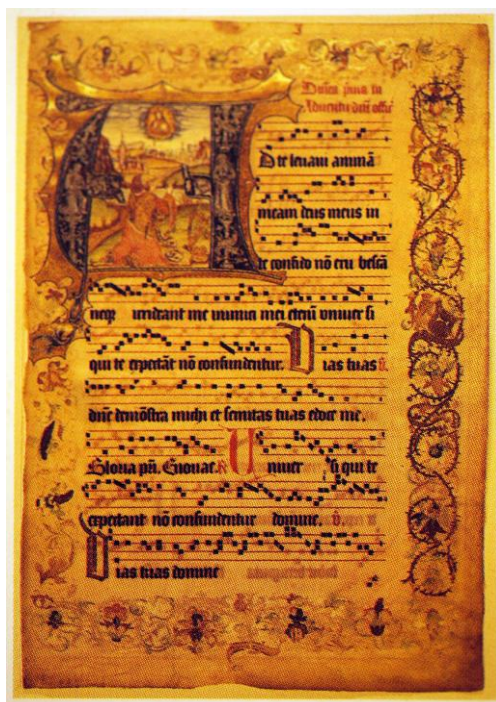 Dnica prima in
Aduentu dni offm
A D te leuaui animā
meam deus meus in
te confido nō eru bescā
neqꝫ irrideant me inimici mei eteni vniuer si
qui te expectāt nō confundentur. Vias tuas v.
dne demōstra michi et semitas tuas edoce me.
Gloria pri. Euouae. R Vniuer si qui te
expectant nō confundentur domine. v.
Vias tuas domine